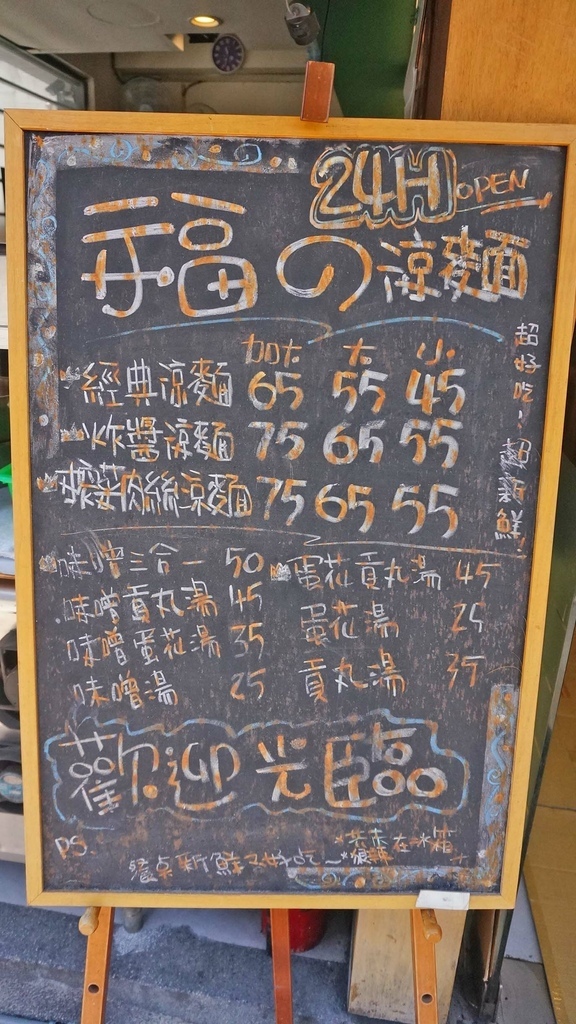 24H OPEN
福の涼麵
超好吃!超新鮮!
加大 大 小
經典涼麵 65 55 45
炸醬涼麵 75 65 55
榨菜肉絲涼麵 75 65 55
味噌三合一 50
味噌貢丸湯 45
味噌蛋花湯 35
味噌湯 25
蛋花貢丸湯 45
蛋花湯 25
貢丸湯 35
歡迎光臨
P.S.
在冰箱
新鮮又好吃~